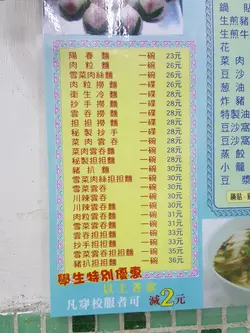 陽春麵 一碗 23元
肉粒麵 一碗 26元
雪菜肉絲麵 一碗 26元
肉粒撈麵 一碟 28元
衛生冷麵 一碟 28元
抄手撈麵 一碟 28元
雲吞撈麵 一碟 28元
担担撈麵 一碟 28元
秘製抄手 一碟 28元
菜肉雲吞 一碗 28元
菜肉雲吞麵 一碗 28元
秘製担担麵 一碗 28元
豬扒麵 一碗 30元
雪菜肉絲担担麵 一碗 31元
雪菜雲吞 一碗 30元
川辣雲吞 一碗 30元
川辣雲吞麵 一碗 30元
雪菜雲吞麵 一碗 31元
雲吞担担麵 一碗 33元
抄手担担麵 一碗 33元
雪菜雲吞担担麵 一碗 35元
豬扒担担麵 一碗 36元
學生特別優惠
以上各款
凡穿校服者可減2元
鍋貼
生煎豬
生煎
花
菜肉
豆沙
葱油
炸豬
特製油
豆沙窩
豆沙窩
蒸餃
小籠
豆漿